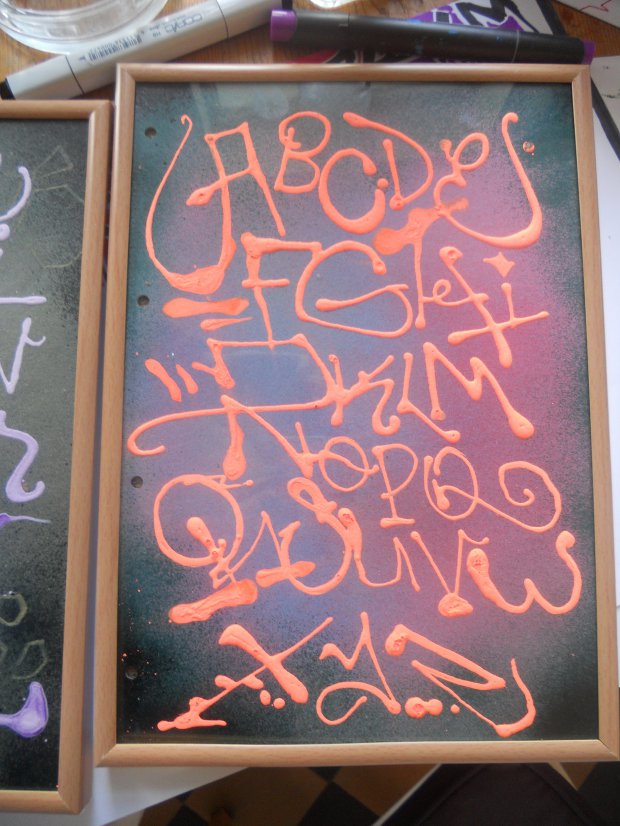 COPIC
ABCDE
FGHI
JKLM
NOPQ
RSTUVW
XYZ